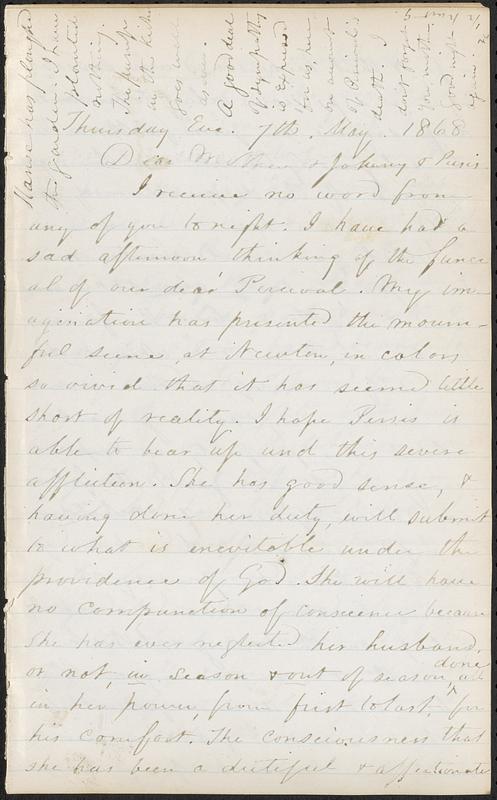 Thursday Eve. 7th. May. 1868
Dear Mother & Johnny & Persis.
I receive no word from
any of you to night. I have had a
sad afternoon thinking of the funer-
al of our dear Percival. My im-
agination has presented the mourn-
ful scene, at Newton, in colors
so vivid that it has seemed little
short of reality. I hope Persis is
able to bear up und this severe
affliction. She has good sense, &
having done her duty, will submit
to what is inevitable under the
providence of God. She will have
no compunction of conscience because
she has ever neglected her husband,
or not, in season & out of season, done all
in her power, from first to last, for
his comfort. The consciousness that
she has been a dutiful & affectionate
has ploughed
the garden. I have
planted
nothing.
The
in the
goes well
A good deal
of sympathy
is expressed
for us, here
on account
of Percival's
death. I
don't forget
you, mother.
Good night
again.